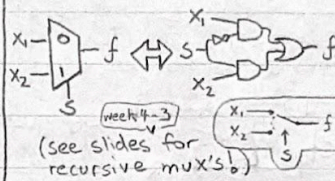 X₁
X₂
0
1
f
S
X₁
S
X₂
f
week 4-3
(see slides for
recursive mux's!)
X₁
X₂
f
S